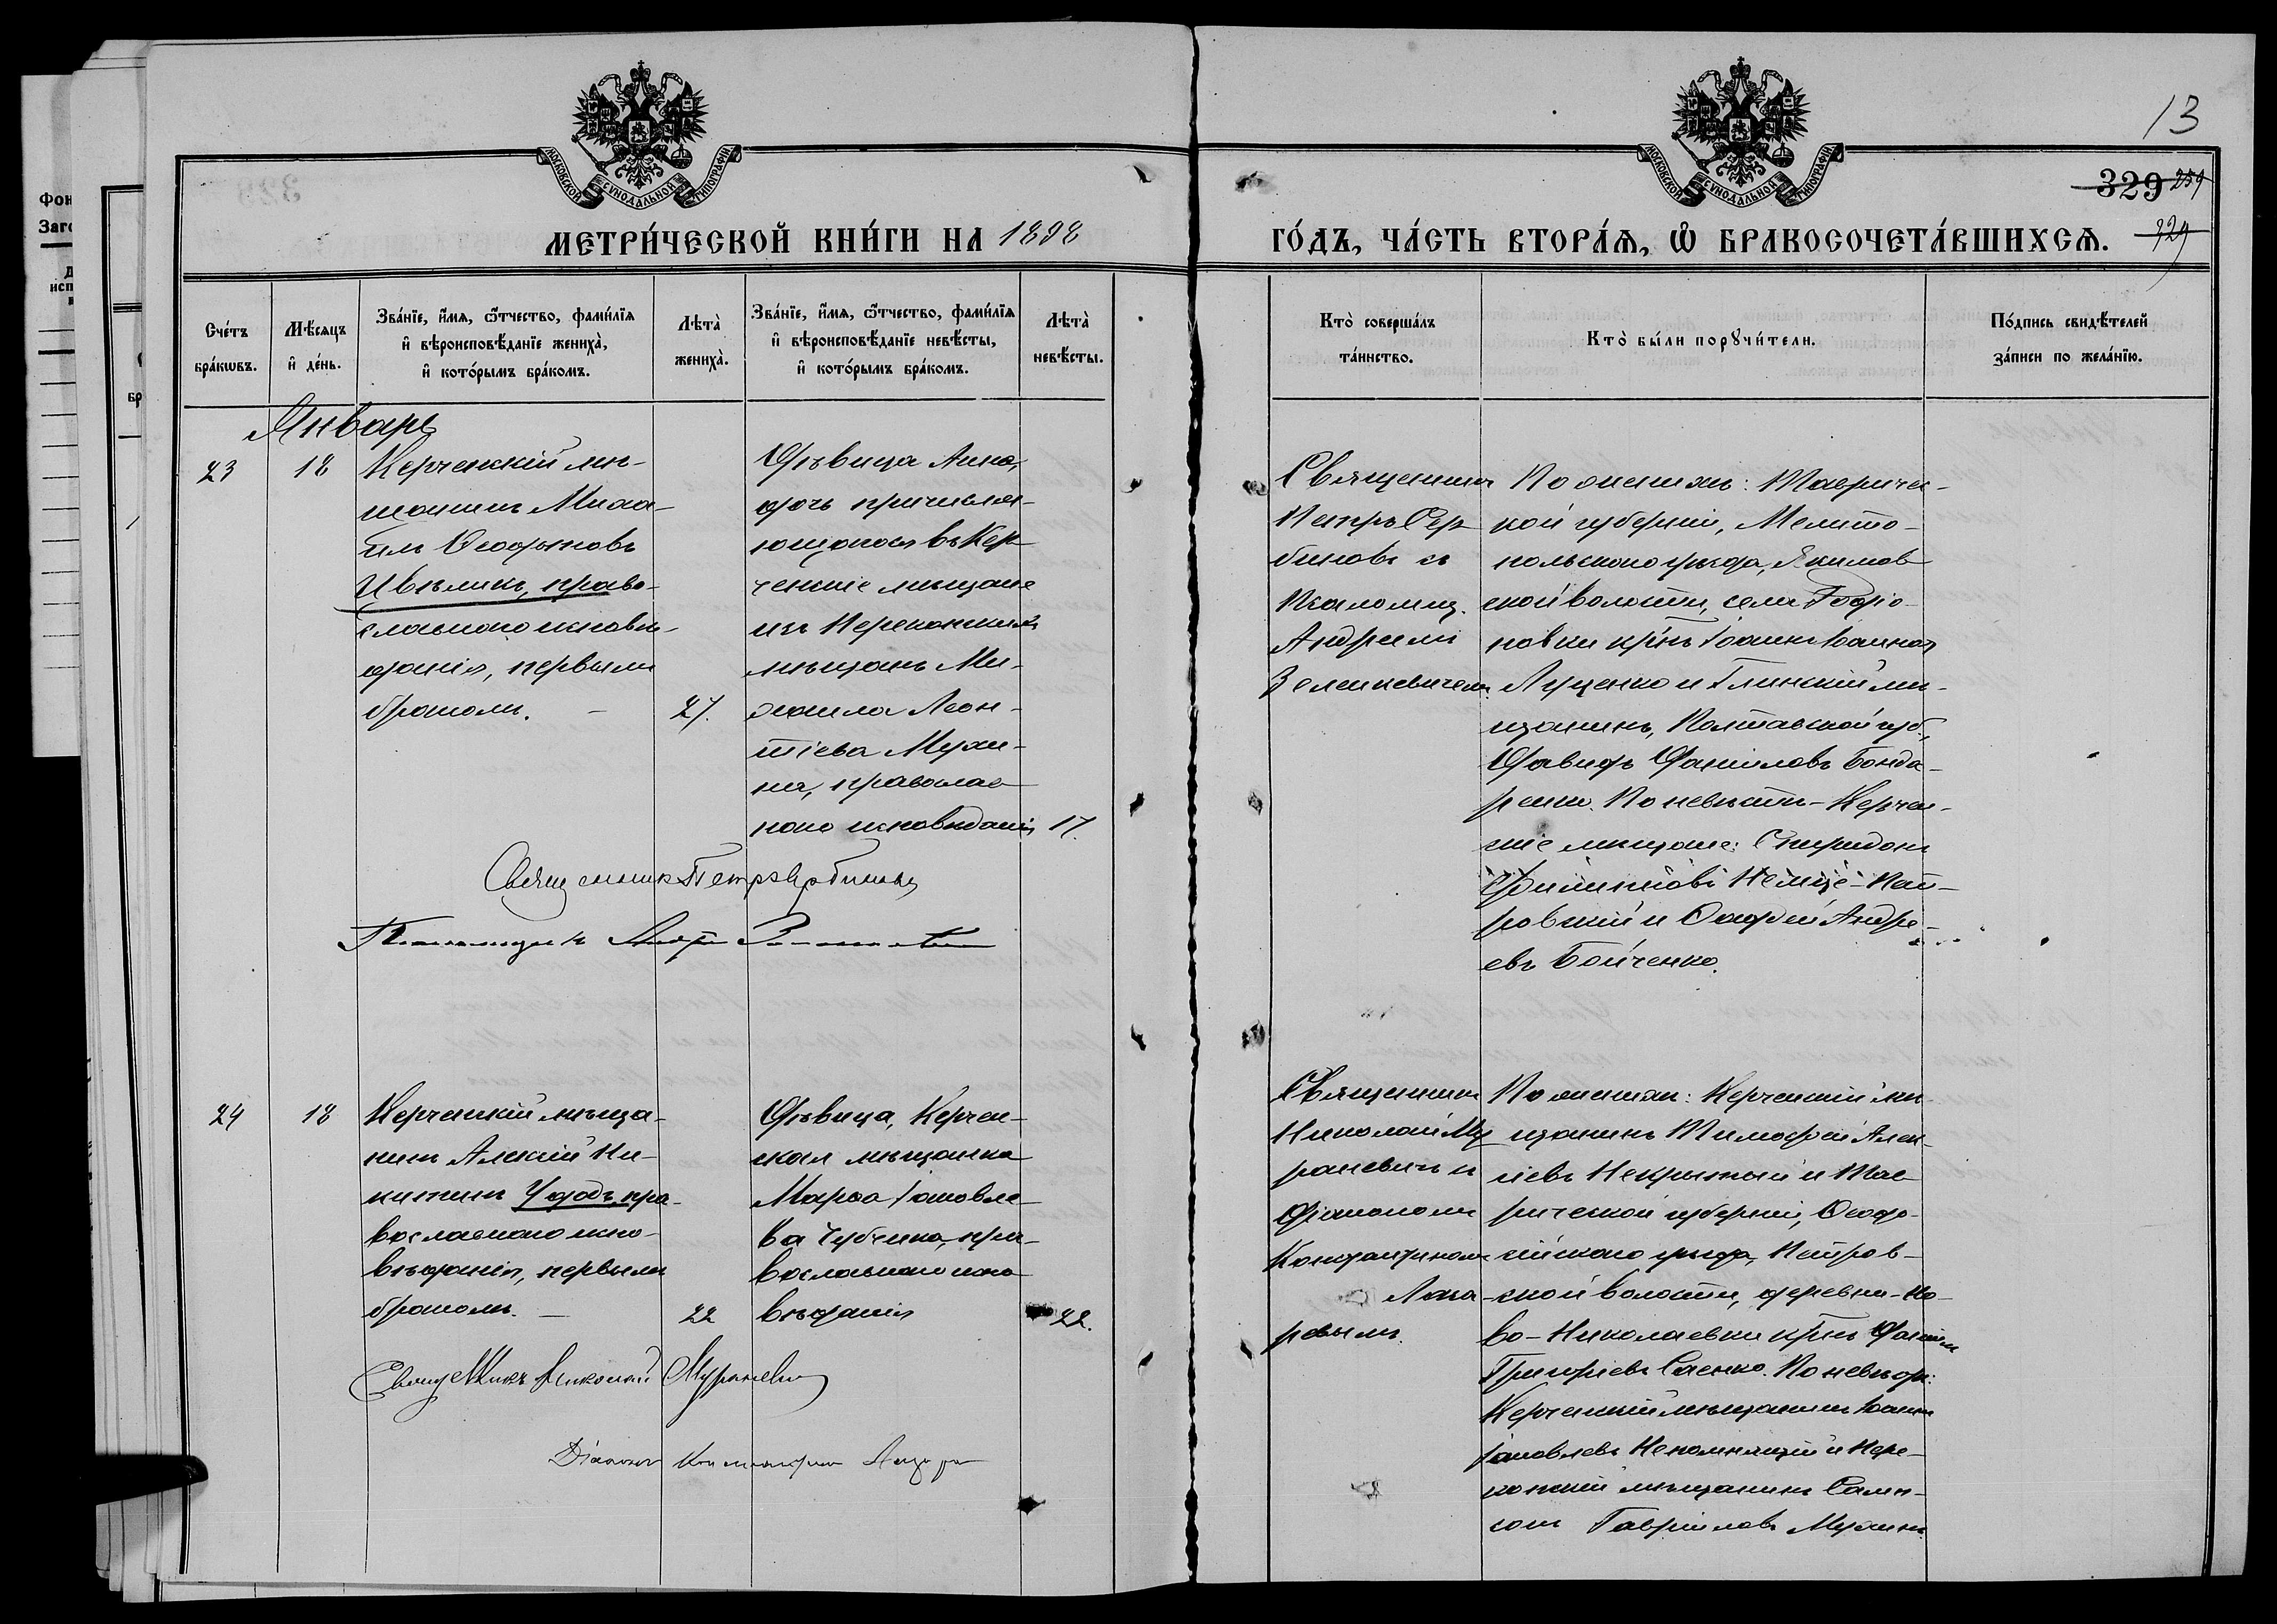 13
МОСКОВСКОЙ СѴНОДАЛЬНОЙ ТИПОГРАФІИ
МОСКОВСКОЙ СѴНОДАЛЬНОЙ ТИПОГРАФІИ
329 259
МЕТРИ́ЧЕСКОЙ КНИ́ГИ НА 1898
ГО́ДЪ, ЧА́СТЬ ВТОРА́Ѧ, Ѡ҆ БРАКОСОЧЕТА́ВШИХСѦ. 329
Фон
Заг
Сче́тъ бра́кѡвъ.
Мѣ́сѧцъ и҆ де́нь.
Зва́нїе, и҆́мѧ, ѻ҆́тчество, фами́лїѧ
и҆ вѣроисповѣ́данїе женихà,
и҆ кото́рымъ бра́комъ.
Лѣтà женихà.
Зва́нїе, и҆́мѧ, ѻ҆́тчество, фами́лїѧ
и҆ вѣроисповѣ́данїе невѣ́сты,
и҆ кото́рымъ бра́комъ.
Лѣтà невѣ́сты.
Ктò соверша́лъ та́инство.
Ктò бы́ли порꙋчи́тели.
По́дпись свидѣ́телей за́писи по жела́нїю.
Январь
23
18
Керченскій мѣ-
щанинъ Миха-
илъ Ѳеодотовъ
Цвѣликъ, право-
славнаго исповѣ-
данія, первымъ
бракомъ. —
27.
Дѣвица Анна,
дочь причисля-
ющагося въ Кер
ченскіе мѣщане
изъ Перекопскихъ
мѣщанъ Ми-
хаила Леон-
тіева Мухи-
на, православ
наго исповѣданія
17.
Священникъ
Петръ Сер
биновъ съ
Псаломщ.
Андреемъ
Зеленкевичемъ.
По женихѣ: Тавричес-
кой губерніи, Мелито-
польскаго уѣзда, Якимов
ской волости, села Родіо-
новки кр-нъ Іоаннъ Іоанновъ
Луценко и Глинскій мѣ-
щанинъ, Полтавской губ.,
Давидъ Даніиловъ Бонда-
ренко. По невѣстѣ - Керчен-
скіе мѣщане: Спиридонъ
Филипповъ Немице-Пет-
ровскій и Ѳеодоръ Андре-
евъ Бойченко.
Священникъ Петръ Сербиновъ
Псаломщикъ
24
18
Керченскій мѣща-
нинъ Алексій Ни-
китинъ Удодъ, пра-
вославнаго испо-
вѣданія, первымъ
бракомъ. —
22
Дѣвица, Керчен-
ская мѣщанка
Марѳа Іаковле-
ва Чубенко, пра-
вославнаго испо
вѣданія
22.
Священникъ
Николай Му
раневичъ съ
Діакономъ
Константиномъ
Лаза-
ревымъ.
По женихѣ: Керченскій мѣ-
щанинъ Тимоѳей Алек-
сіевъ Некрытый и Тав
рической губерніи, Ѳеодо-
сійскаго уѣзда, Петров-
ской волости, деревни - Но-
во-Николаевки кр-нъ Даніилъ
Григоріевъ Саенко. По невѣстѣ:
Керченскій мѣщанинъ Іоаннъ
Іаковлевъ Непомнящій и Пере-
копскій мѣщанинъ Самп-
сонъ Гавріиловъ Мухинъ.
Священникъ Николай Мураневичъ
Діаконъ Константинъ Лазарев